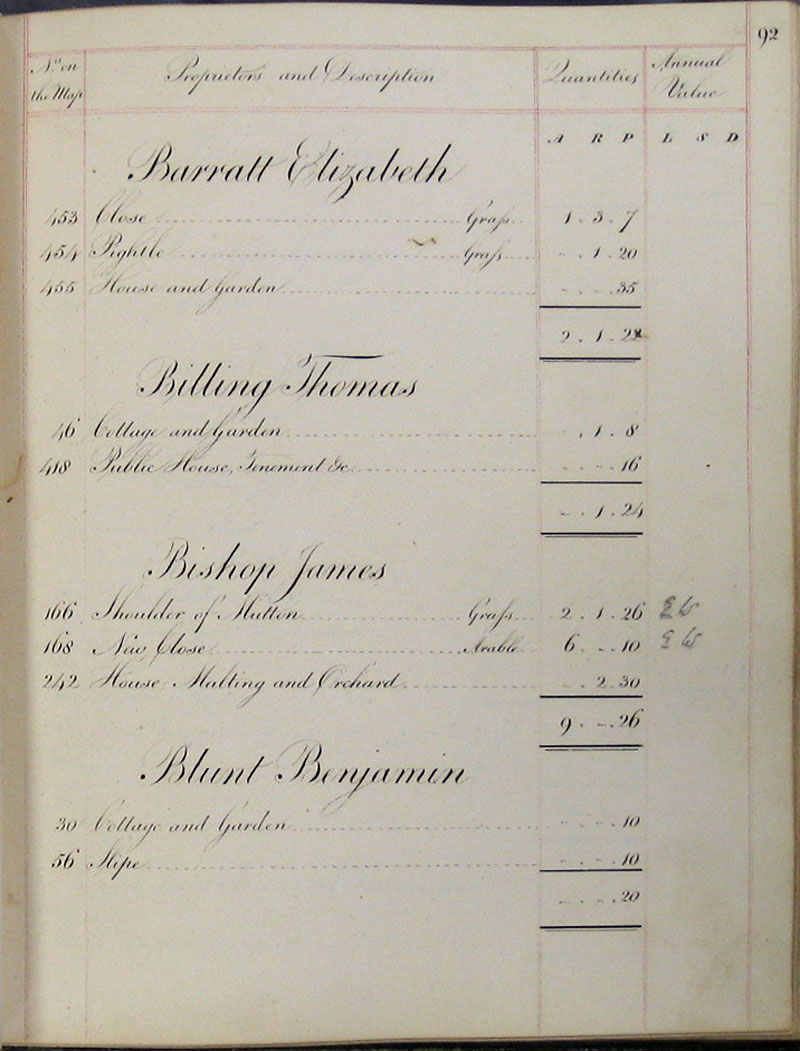 92
No. on the Map Proprietors and Description Quantities Annual Value
A R P L S D
Barratt Elizabeth
453 Close Grass 1 . 3 . 7
454 Pightle Grass - . 1 . 20
455 House and Garden - . - . 35
2 . 1 . 22
Billing Thomas
46 Cottage and Garden - . 1 . 8
418 Public House, Tenement &c - . - . 16
- . 1 . 24
Bishop James
166 Shoulder of Mutton Grass 2 . 1 . 26
168 New Close Arable 6 . - . 10
242 House Malting and Orchard - . 2 . 30
9 . - . 26
Blunt Benjamin
30 Cottage and Garden - . - . 10
56 Slipe - . - . 10
- . - . 20